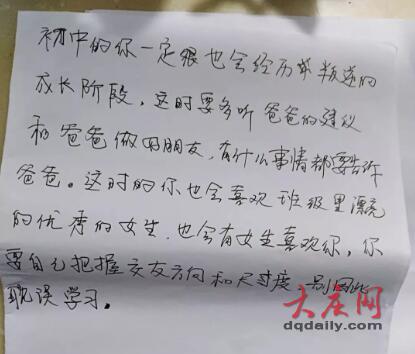 初中的你一定很也会经历叛逆的
成长阶段,这时要多听爸爸的建议
和爸爸做好朋友,有什么事情都要告诉
爸爸。这时的你也会喜欢班级里漂亮
的优秀的女生.也会有女生喜欢你,你
要自己把握交友方向和尺度,别因此
耽误学习。
大庆网
dqdaily.com